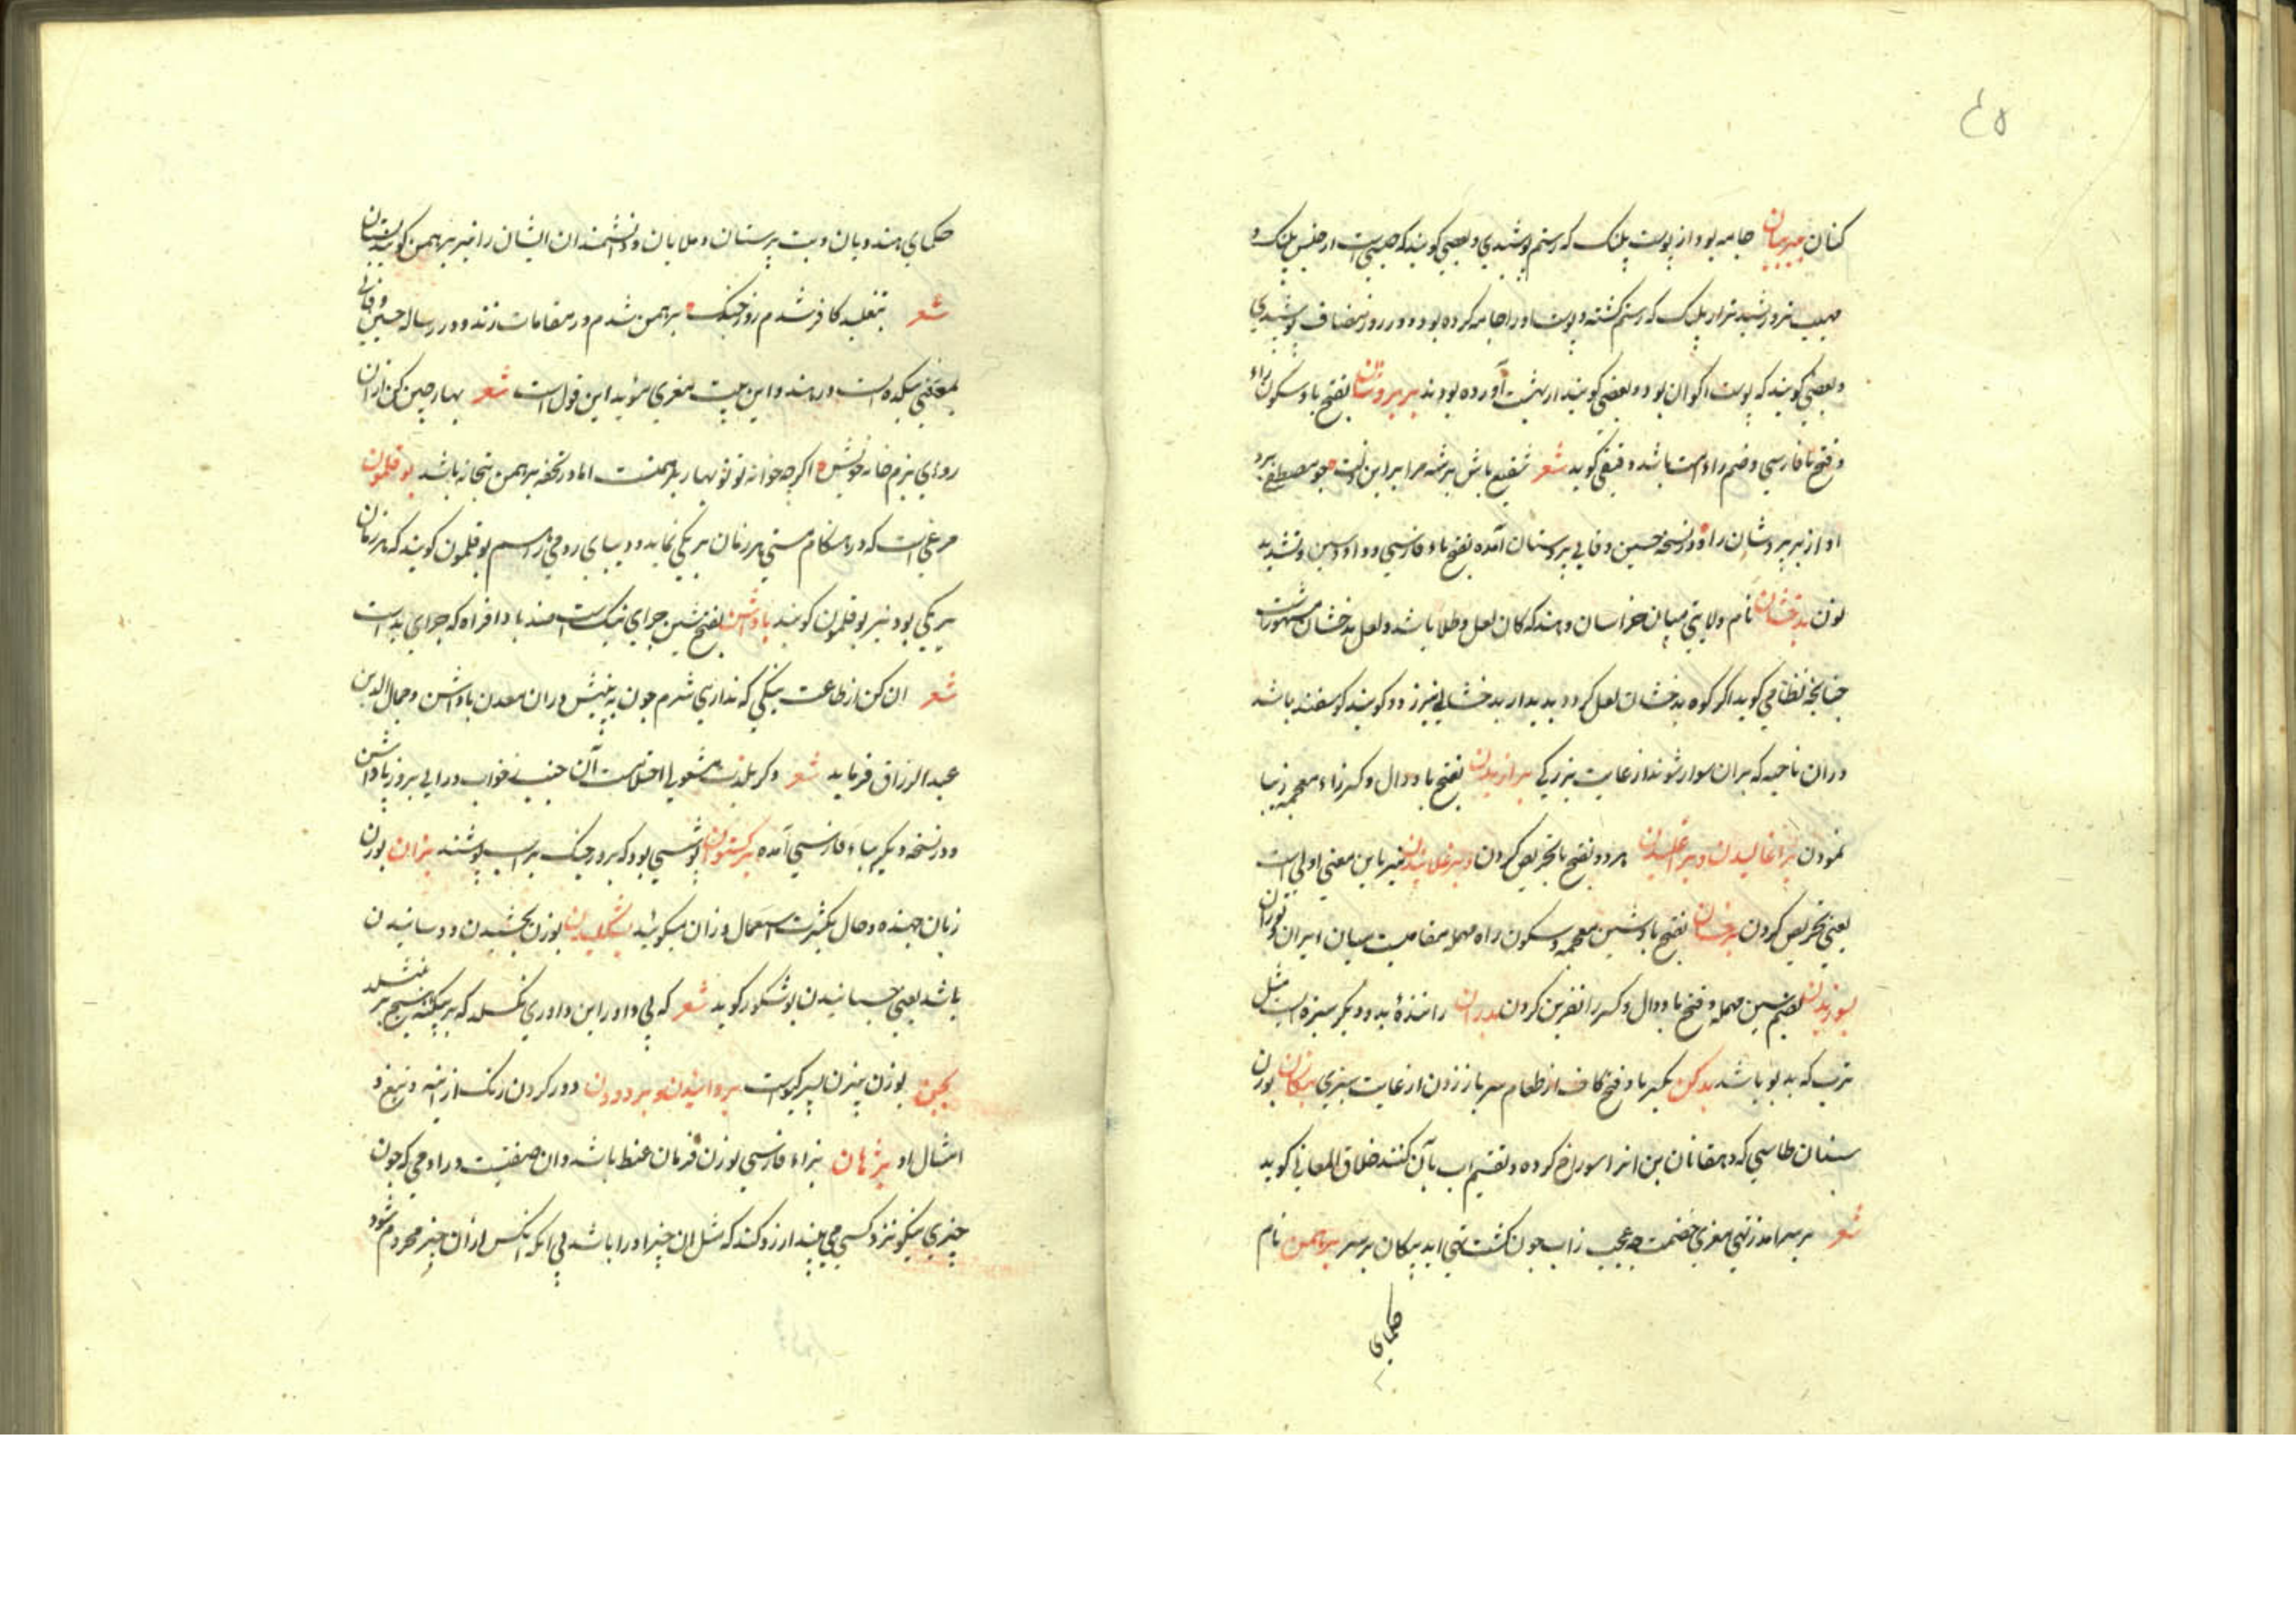 ٤٥
کنان ببربیان جامه بود از پوست پلنک که رستم پوشیدی و بعضی کویند که جیبی است از جنس پلنک و
مهیب تر و رشید تر از پلنک که رستم کشته و پوست او را جامه کرده بود و در روز مصاف پوشیدی
و بعضی کویند که پوست اکوان بود و بعضی کویند از بهشت آورده بودند بربروشان بفتح با و سکون راء
و فتح با فارسی و ضم راء امت باشد دقیقی کوید شعر شفیع باش بر شه مرا برین زلت چو مصطفی بر
او از بربروشان را و در نسخه حسین وفایی بروستان آمده بفتح با و فارسی و واو و سین و تشدید
نون بدخشان نام ولایتی میان خراسان و هند که کان لعل و طلا باشد و لعل بدخشان مشهور است
چنانچه نظامی کوید اکر کوه بدخشان لعل کردد بدیدار بدخشانی نیرزد و کویند کوسفند باشد
در ان ناحیه که بران سوار شوند از غایت بزرکی برازیدن بفتح با و دال و کسر زاء معجمه زیبا
نمودن براغالیدن و براغلیدن هر دو بفتح با تحریص کردن و برغلانیدن نیز باین معنی اولی است
یعنی تحریص کردن برخشان بفتح با و شین معجمه و سکون راء مهمله مقامیست میان ایران و توران
بسوریدن بضم سین مهمله و فتح با و دال و کسر را نفرین کردن بدران رانندهٔ بد و دیکر سبزه ایست مثل
ترب که بد بو باشد بدکن بکسر با و فتح کاف از طعام سر باز زدن از غایت سیری بنکان بوزن
سنان طاسی که دهقانان بن انرا سوراخ کرده و تقسیم اب بآن کنند خلاق المعانی کوید
شعر بر سر امد ز تهی مغزی خصمت چه عجب زاب چون کشت تهی اید بنکان بر سر برهمن نام
حکمای
حکمای هندویان و بت پرستان و ملایان و دانشمندان ایشان را نیز برهمن کویند
شعر بتقلید کافر شدم روز چند برهمن شدم در مقامات زند و در رساله حسین وفائی
بمعنی بتکده است در هند و این بیت مغزی مؤید این قول است شعر بهار چین کن ازان
روی بزم خانه خویش اکرچه خانه تو نوبهار برهمنست اما در تحفه برهمن بتخانه باشد بوقلمون
مرغی است که در هنکام مستی هر زمان برنکی نماید و دیبای رومی را هم بوقلمون کویند که هر زمان
برنکی بود نیز بوقلمون کویند باداشن بفتح شین جزای نیک است ضد بادافراه که جزای بد است
شعر ان کن از طاعت نیکی که نداری شرم چون به بینیش در ان معدن باداشن و جمال الدین
عبد الرزاق فرماید شعر
و در نسخه دیکر بباء فارسی آمده برکستوان پوشسی بود که بروز جنک بر اسب پوشند بزان بوزن
زبان جهنده و حال بکثرت استعمال وزان میکوئید بشکلیدن بوزن بخشیدن دوسانیدن
باشد یعنی چسبانیدن بوشکور کوید شعر که بی داور این داوری نکسلد که بر بیکنه هیچ بر نبشلد
بخن بوزن پیرن بسیر کوست بردانیدن و بردودن دور کردن زنک از آینه و تیغ و
امثال او بژهان بزاء فارسی بوزن فرمان غبط باشد و ان صفتیست در ادمی که چون
چیزی نیکو نزد کسی می بیند ارزو کند که مثل ان چیز او را باشد بی انکه انکس از ان چیز محروم شود